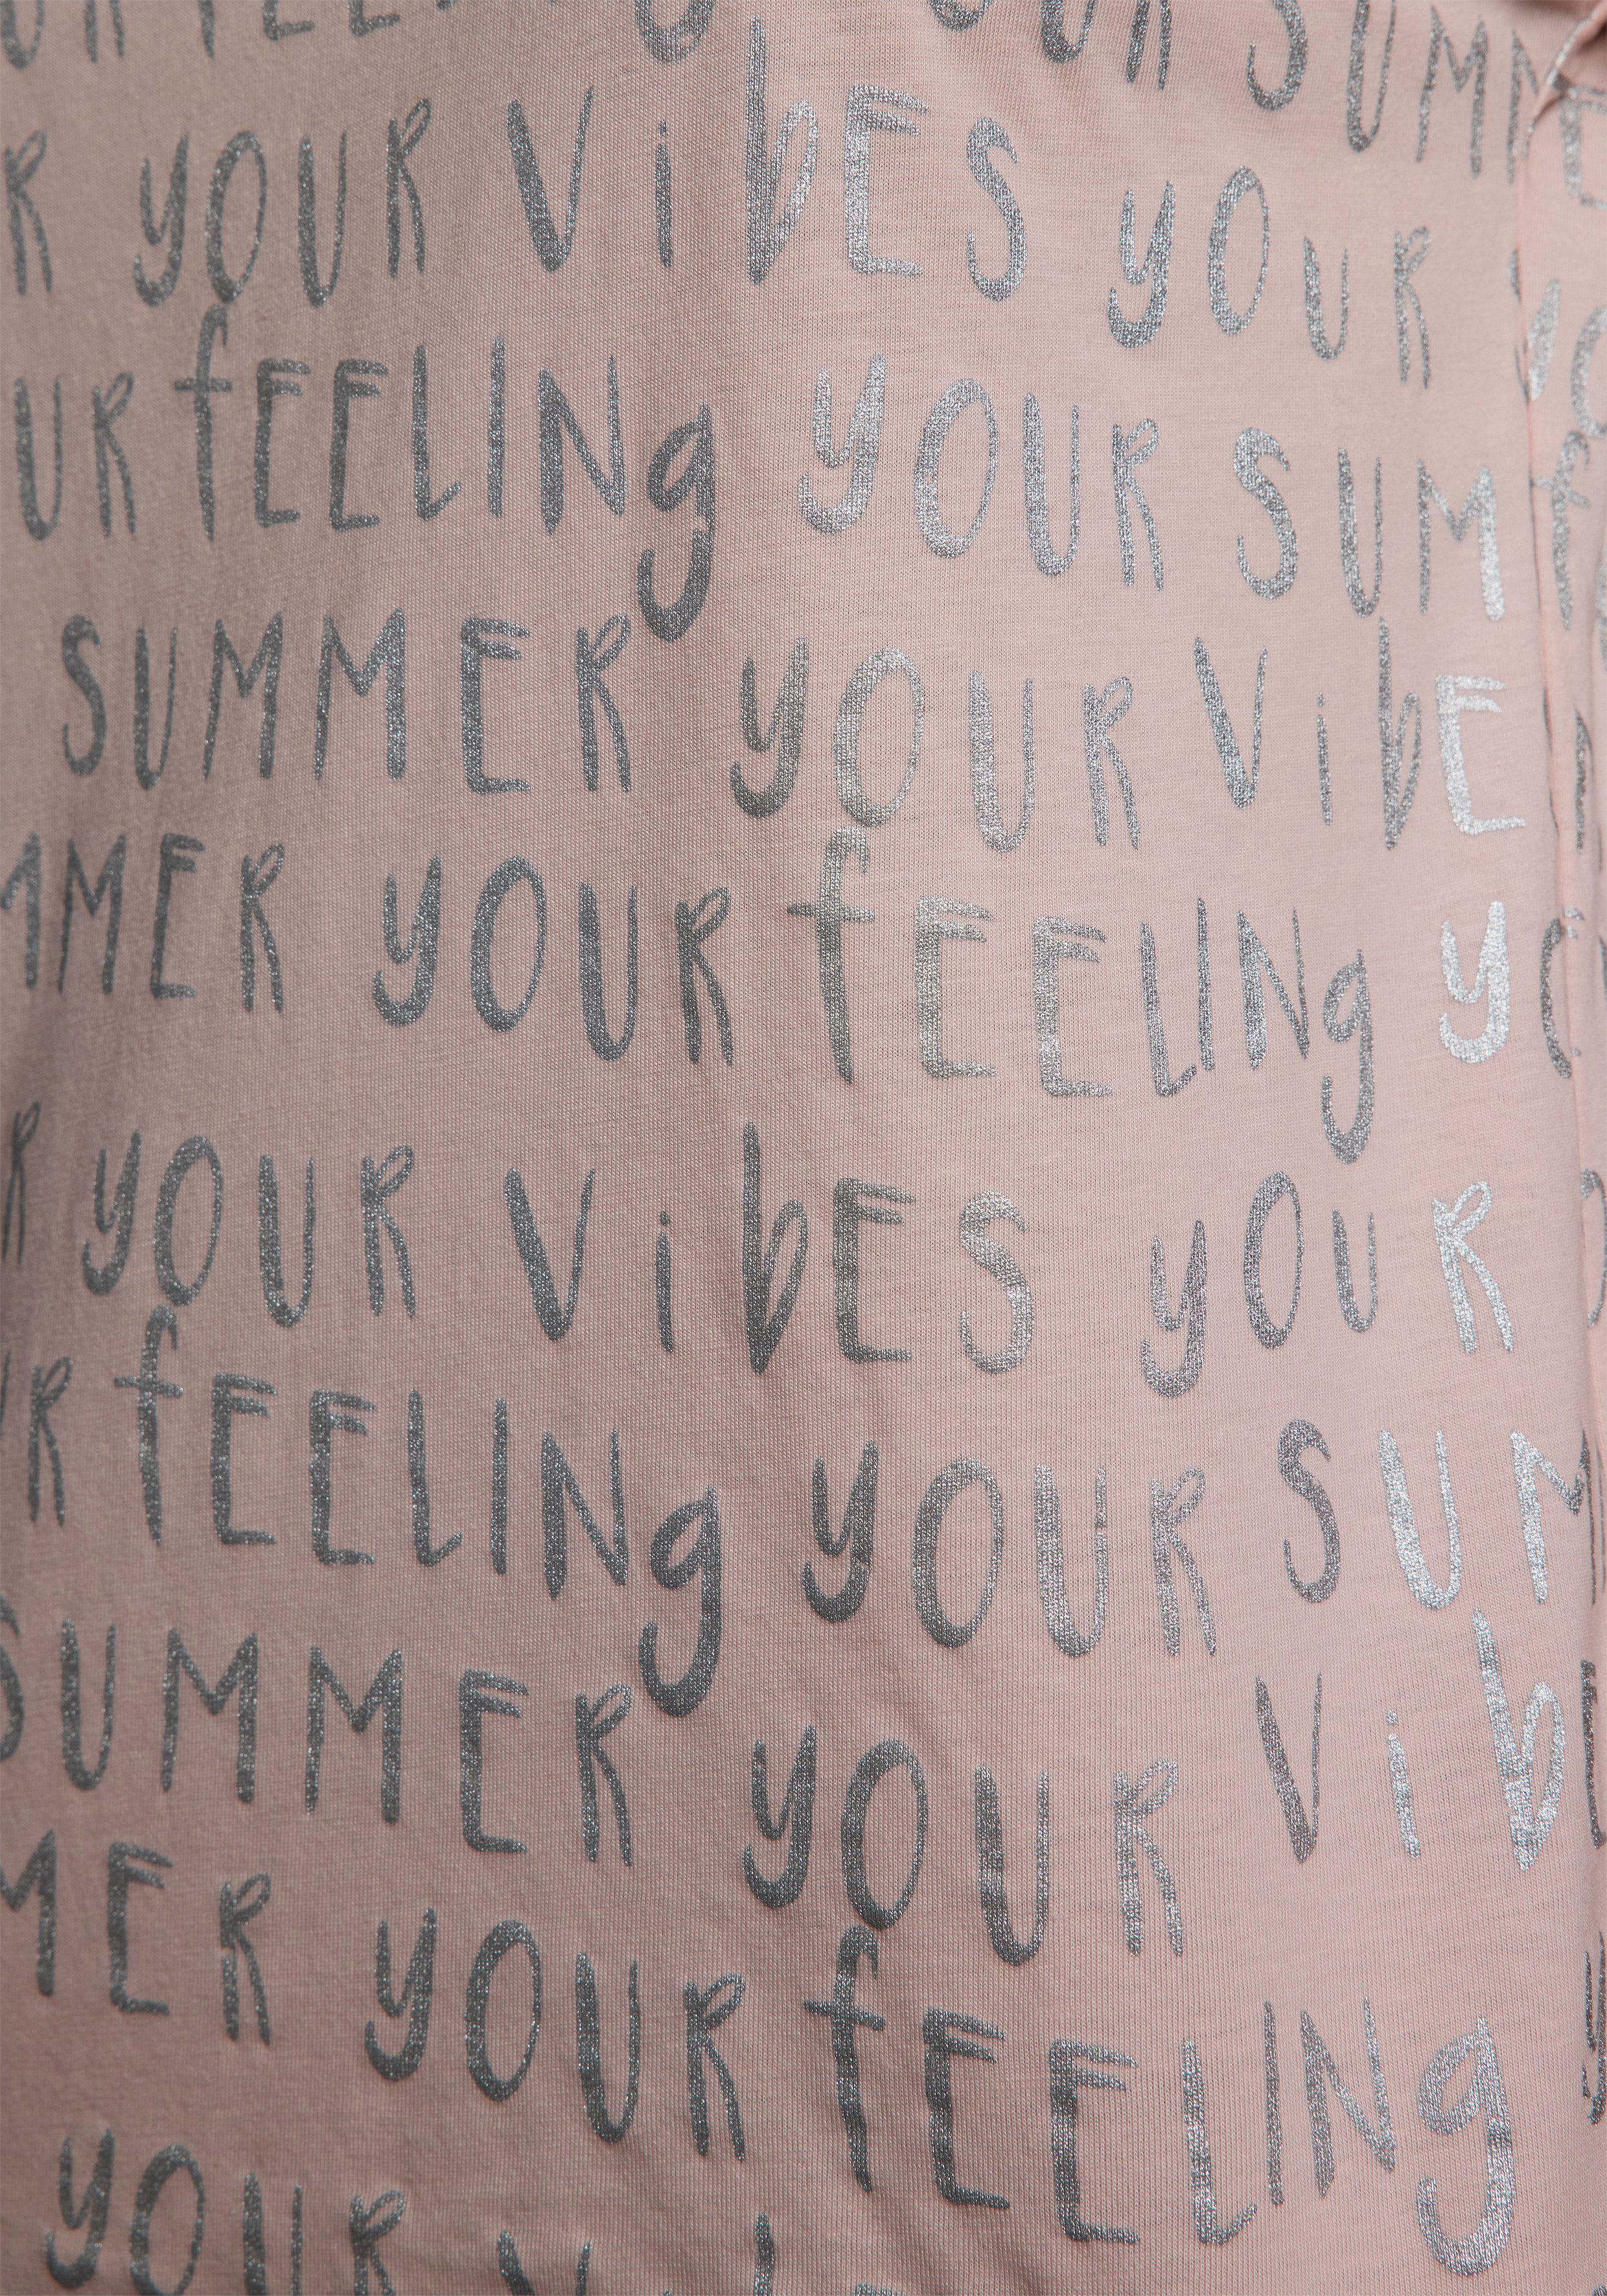 FEELING YOUR SUMM
R YOUR ViBES YOUR
UR FEELING YOUR SUM
SUMMER YOUR ViBE
MMER YOUR FEELING YO
R YOUR ViBES YOUR
UR FEELING YOUR SUM
SUMMER YOUR ViBE
MER YOUR FEELING y
YOUR